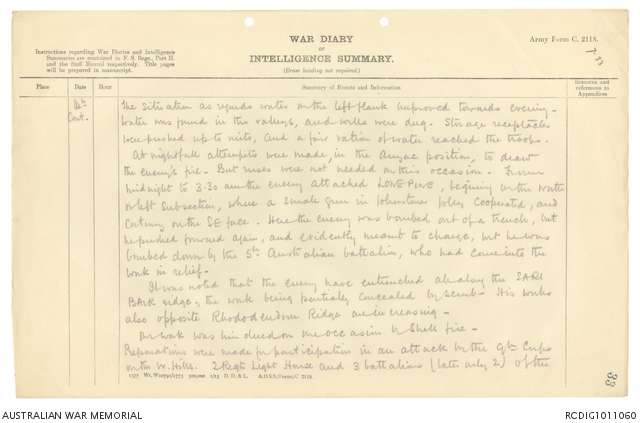 WAR DIARY
or
INTELLIGENCE SUMMARY.
(Erase heading not required.)
Army Form C. 2118.
Instructions regarding War Diaries and Intelligence
Summaries are contained in F. S. Regs., Part II.
and the Staff Manual respectively. Title pages
will be prepared in manuscript.
Place
Date
Hour
Summary of Events and Information
Remarks and
references to
Appendices
Cont.
The situation as regards water on the left flank improved towards evening.
Water was found in the valleys, and wells were dug. Storage receptacles
were pushed up to units, and a fair ration of water reached the troops.
At nightfall attempts were made, in the Anzac position, to draw
the enemy's fire. But ruses were not needed on this occasion. From
midnight to 3-30 am the enemy attacked LONE PINE, beginning on the north
or left subsection, where a small gun in Johnstons Jolly cooperated, and
continuing on the SE face. Here the enemy was bombed out of a trench, but
he pushed forward again, and evidently meant to charge, but he was
bombed down by the 5th Australian battalion, who had come into the
work in relief.
It was noted that the enemy have entrenched all along the SARI
BAIR ridge, the work being partially concealed by scrub. His works
also opposite Rhododendron Ridge are increasing.
Our work was hindered on one occasion by shell fire.
Preparations were made for participation in an attack by the 9th Corps
on the W. Hills. 2 Regts Light Horse and 3 battalions (later only 2) of the
33
AUSTRALIAN WAR MEMORIAL
RCDIG1011060